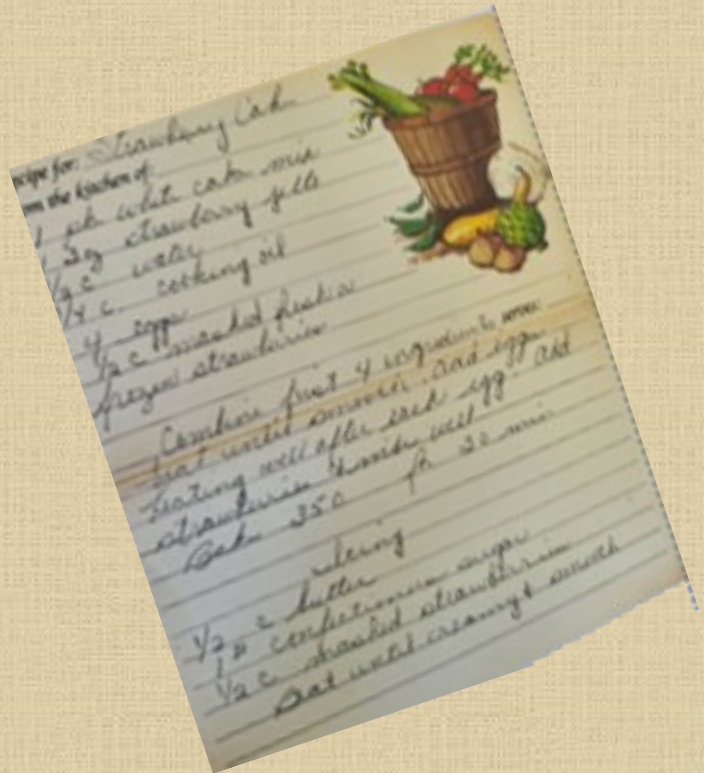 ecipe for: Strawberry Cake
om the kitchen of:
1 pk white cake mix
1 3oz strawberry jello
1/2 c water
1/4 c. cooking oil
4 eggs
1/2 c mashed fresh or
frozen strawberries
Combine first 4 ingredients
beat until smooth. add eggs
beating well after each egg. add
strawberries & mix well
Bake 350 for 30 min
icing
1/2 c butter
1 confectioners sugar
1/2 c mashed strawberries
Beat until creamy & smooth